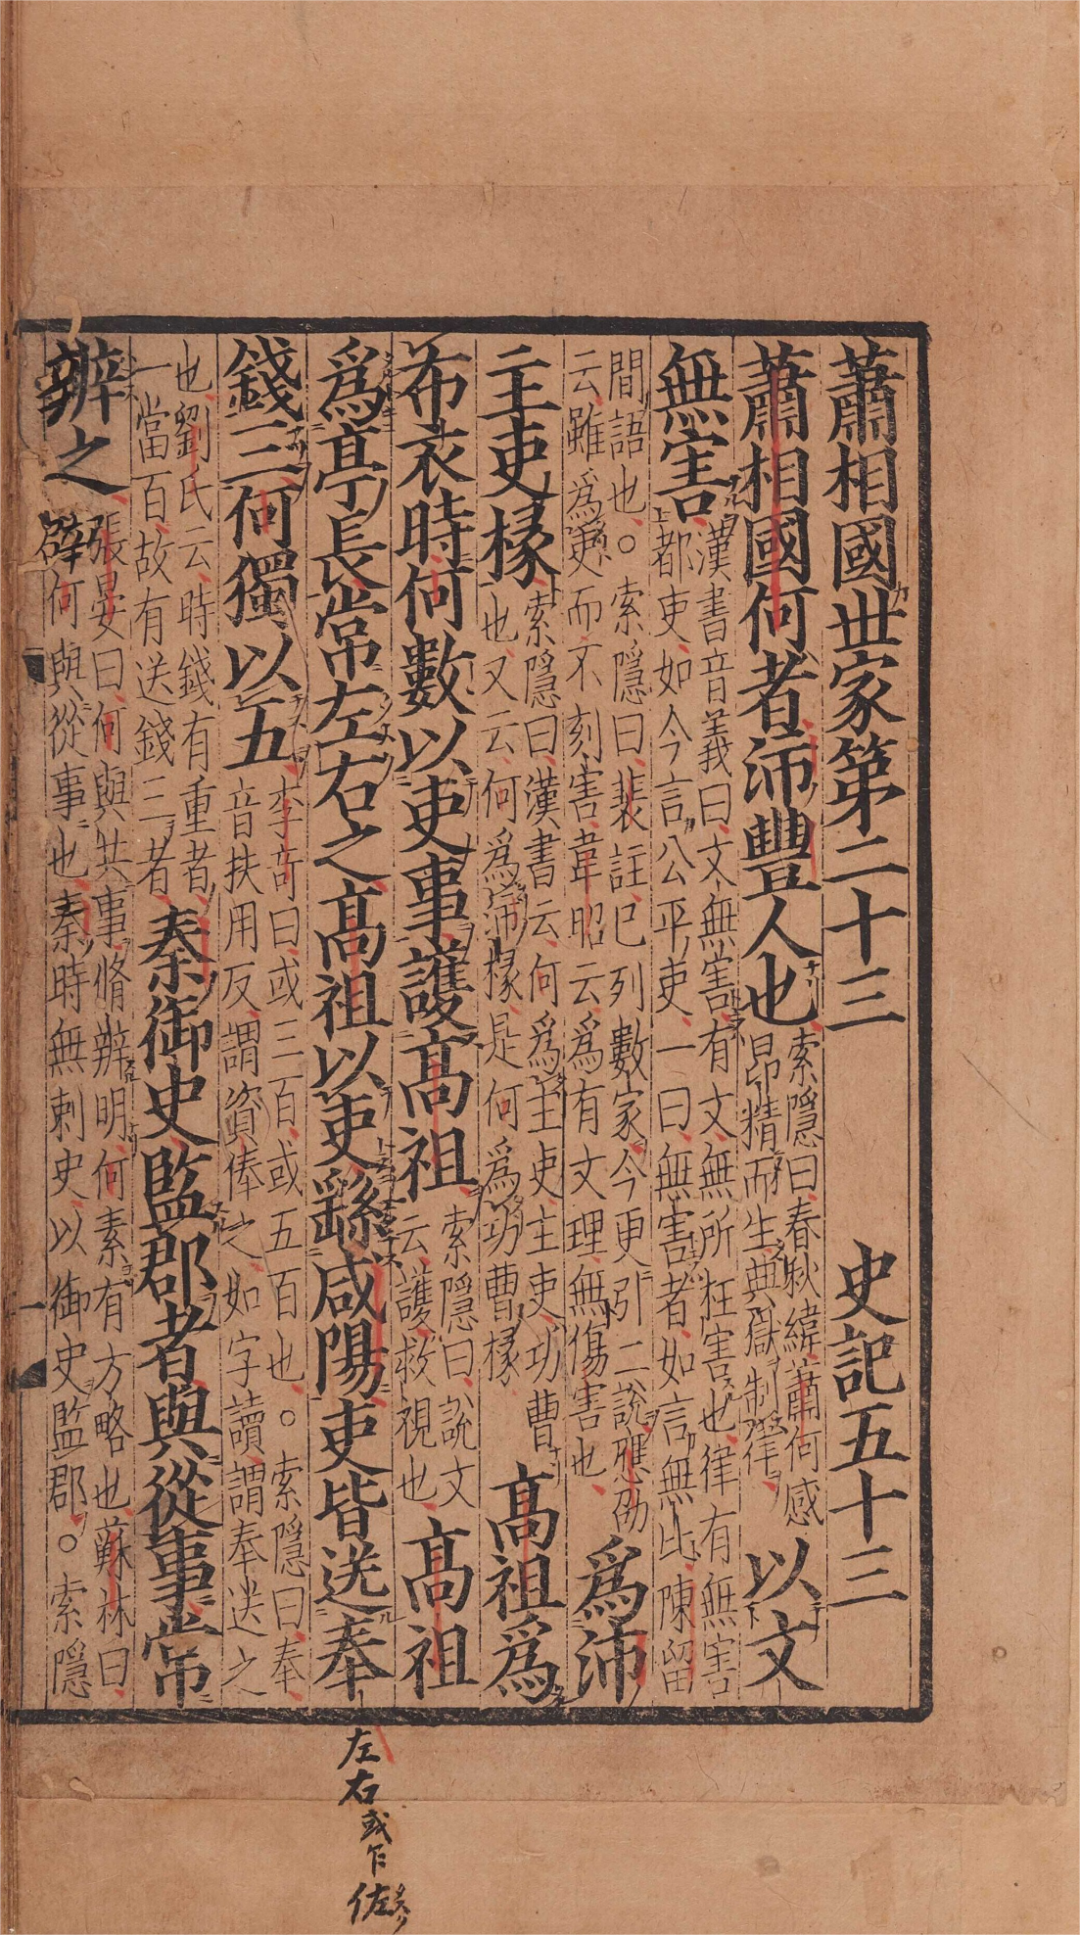 蕭相國世家第二十三　史記五十三
蕭相國何者沛豐人也索隱曰春秋緯蕭何感昴精而生典獄制律以文
無害漢書音義曰文無害有文無所枉害也律有無害都吏如今言公平吏一曰無害者如言無比陳留
間語也○索隱曰裴註已列數家今更引二說應劭云雖爲吏而不刻害韋昭云爲有文理無傷害也爲沛
主吏椽索隱曰漢書云何爲主吏主吏功曹也又云何爲沛椽是何爲功曹椽高祖爲
布衣時何數以吏事護高祖索隱曰說文云護救視也高祖
爲亭長常左右之高祖以吏繇咸陽吏皆送奉
錢三何獨以五李奇曰或三百或五百也○索隱曰奉音扶用反謂資俸之如字讀謂奉送之
也劉氏云時錢有重者一當百故有送錢三者秦御史監郡者與從事常
辨之張晏曰何與共事脩辨明何素有方略也蘇林曰辟何與從事也秦時無刺史以御史監郡○索隱
左右或乍佐